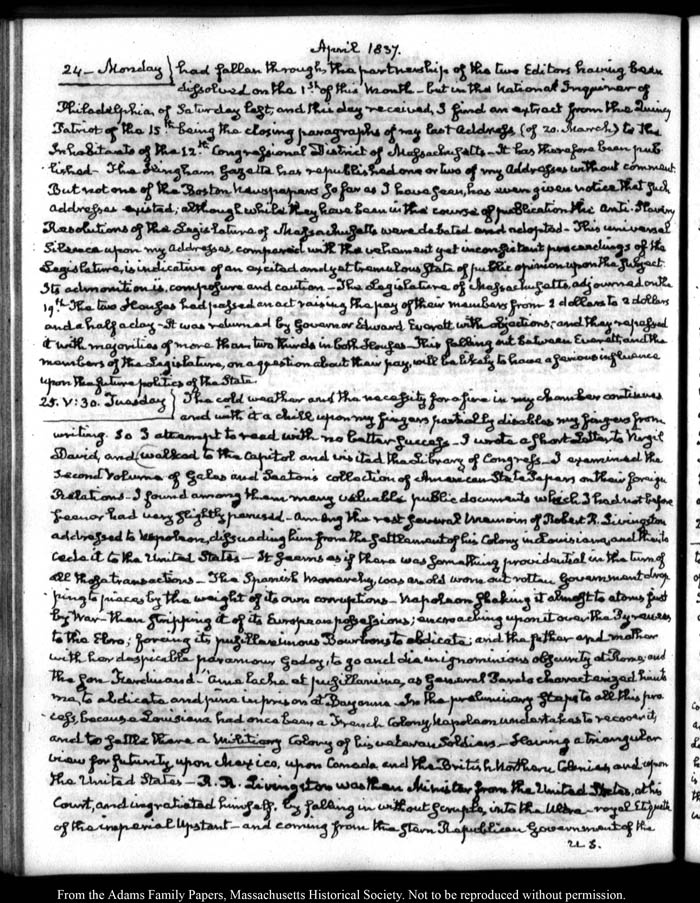 April 1837.
24 — Monday } had fallen through, the partnership of the two Editors having been
dissolved on the 1st of this Month — but in the National Enquirer of
Philadelphia, of Saturday last, and this day received, I find an extract from the Quincy
Patriot of the 15th being the closing paragraphs of my last Address (of 20. March) to the
Inhabitants of the 12th Congressional District of Massachusetts — It has therefore been pub-
lished — The Hingham Gazette has republished one or two of my Addresses without comment
But not one of the Boston Newspapers so far as I have seen, has even given notice that such
addresses existed; although while they have been in the course of publication the Anti-Slavery
Resolutions of the Legislature of Massachusetts were debated and adopted — This universal
Silence upon my Addresses, compared with the vehement yet inconsistent proceedings of the
Legislature, is indicative of an excited and yet tremulous state of public opinion upon the subject.
Its admonition is, composure and caution — The Legislature of Massachusetts adjourned on the
19th The two Houses had passed an act raising the pay of their members from 2 dollars to 2 dollars
and a half a day — It was returned by Governor Edward Everett with objections; and they repassed
it with majorities of more than two thirds in both Houses. This falling out between Everett, and the
members of the Legislature, on a question about their pay, will be likely to have a serious influence
upon the future politics of the State.
25. V: 30. Tuesday } The cold weather and the necessity for a fire in my chamber continues
and with it a chill upon my fingers partially disables my fingers from
writing. So I attempt to read with no better success — I wrote a short Letter to Virgil
David, and walked to the Capitol and visited the Library of Congress — I examined the
Second Volume of Gales and Seaton's collection of American State Papers on their foreign
Relations — I found among them many valuable public documents which I had not before
seen or had very slightly perused — Among the rest several Memoirs of Robert R. Livingston
addressed to Napoleon, dissuading him from the settlement of his Colony in Louisiana, and the to
cede it to the United States — It seems as if there was something providential in the turn of
all those transactions — The Spanish Monarchy, was an old worn out rotten Government drop-
ping to pieces by the weight of its own corruptions — Napoleon shaking it almost to atoms first
by War — then stripping it of its European possessions; encroaching upon it over the Pyrenees
to the Ebro; forcing its pusillanimous Bourbons to abdicate; and the father and mother
with her despicable paramour Godoy, to go and die in ignominious obscurity at Rome, and
the son Ferdinand et pusillanime, as General Savary characterized him to
me, to abdicate and pine in prison at Bayonne — In the preliminary steps to all this pro-
cess, because Louisiana had once been a French Colony, Napoleon undertakes to recover it,
and to settle there a military Colony of his veteran Soldiers — Having a triangular
view for futurity upon Mexico, upon Canada and the British Northern Colonies, and upon
the United States — R. R. Livingston was then Minister from the United States, at his
Court, and ingratiated himself, by falling in without scruple, into the Ultra-royal Etiquette
of the imperial Upstart — and coming from the stern Republican Government of the
U. S.
From the Adams Family Papers, Massachusetts Historical Society. Not to be reproduced without permission.